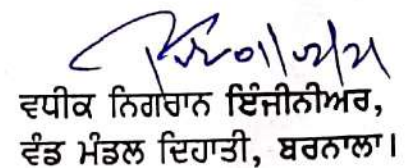 ਵਧੀਕ ਨਿਗਰਾਨ ਇੰਜੀਨੀਅਰ,
ਵੰਡ ਮੰਡਲ ਦਿਹਾਤੀ, ਬਰਨਾਲਾ।